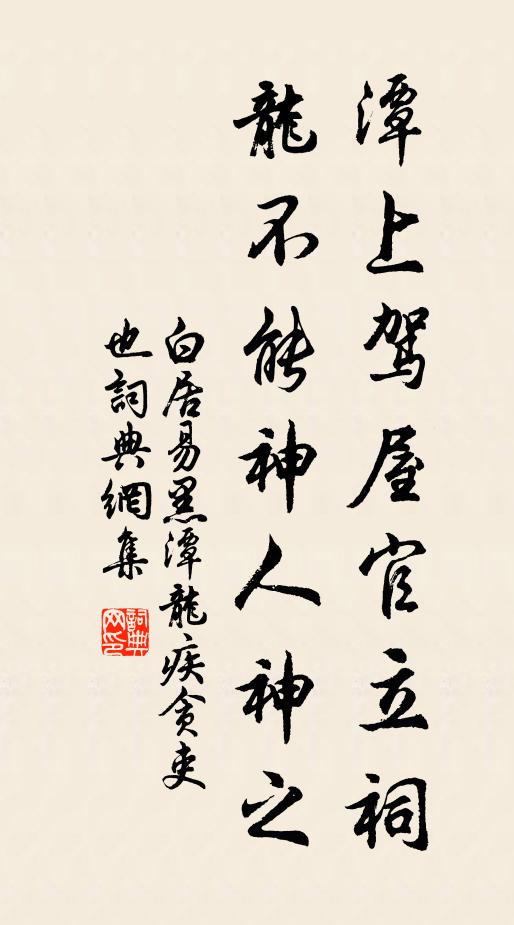 潭上駕屋官立祠
龍不能神人神之
白居易黑潭龍疾貪吏
也詞典網集
詞典
網印